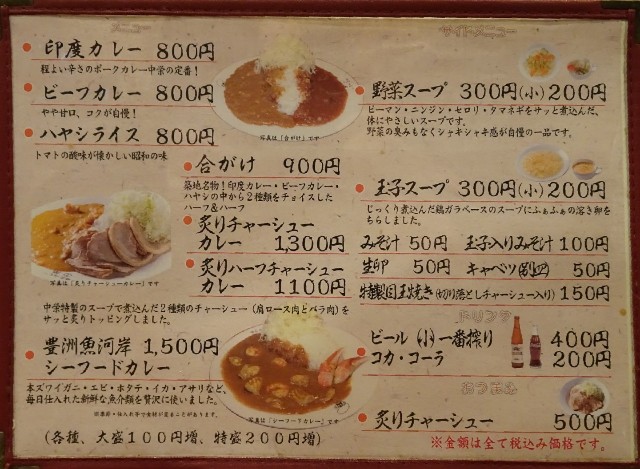 メニュー
印度カレー 800円
程よい辛さのポークカレー中栄の定番！
ビーフカレー 800円
やや甘口、コクが自慢！
ハヤシライス 800円
トマトの酸味が懐かしい昭和の味
写真は「合がけ」です
合がけ 900円
築地名物！印度カレー・ビーフカレー・
ハヤシの中から2種類をチョイスした
ハーフ＆ハーフ
炙りチャーシュー
カレー 1,300円
炙りハーフチャーシュー
カレー 1100円
写真は「炙りチャーシューカレー」です
中栄特製のスープで煮込んだ2種類のチャーシュー（肩ロース肉とバラ肉）を
サッと炙りトッピングしました。
豊洲魚河岸 1,500円
シーフードカレー
本ズワイガニ・エビ・ホタテ・イカ・アサリなど、
毎日仕入れた新鮮な魚介類を贅沢に使いました。
写真は「シーフードカレー」です
（各種、大盛100円増、特盛200円増）
サイドメニュー
野菜スープ 300円（小）200円
ピーマン・ニンジン・セロリ・タマネギをサッと煮込んだ、
体にやさしいスープです。
野菜の臭みもなくシャキシャキ感が自慢の一品です。
玉子スープ 300円（小）200円
じっくり煮込んだ鶏ガラベースのスープにふぁふぁの溶き卵を
ちらしました。
みそ汁 50円 玉子入りみそ汁 100円
生卵 50円 キャベツ（別皿） 50円
特製目玉焼き（切り落としチャーシュー入り）150円
ドリンク
ビール（小）一番搾り 400円
コカ・コーラ 200円
おつまみ
炙りチャーシュー 500円
※金額は全て税込み価格です。